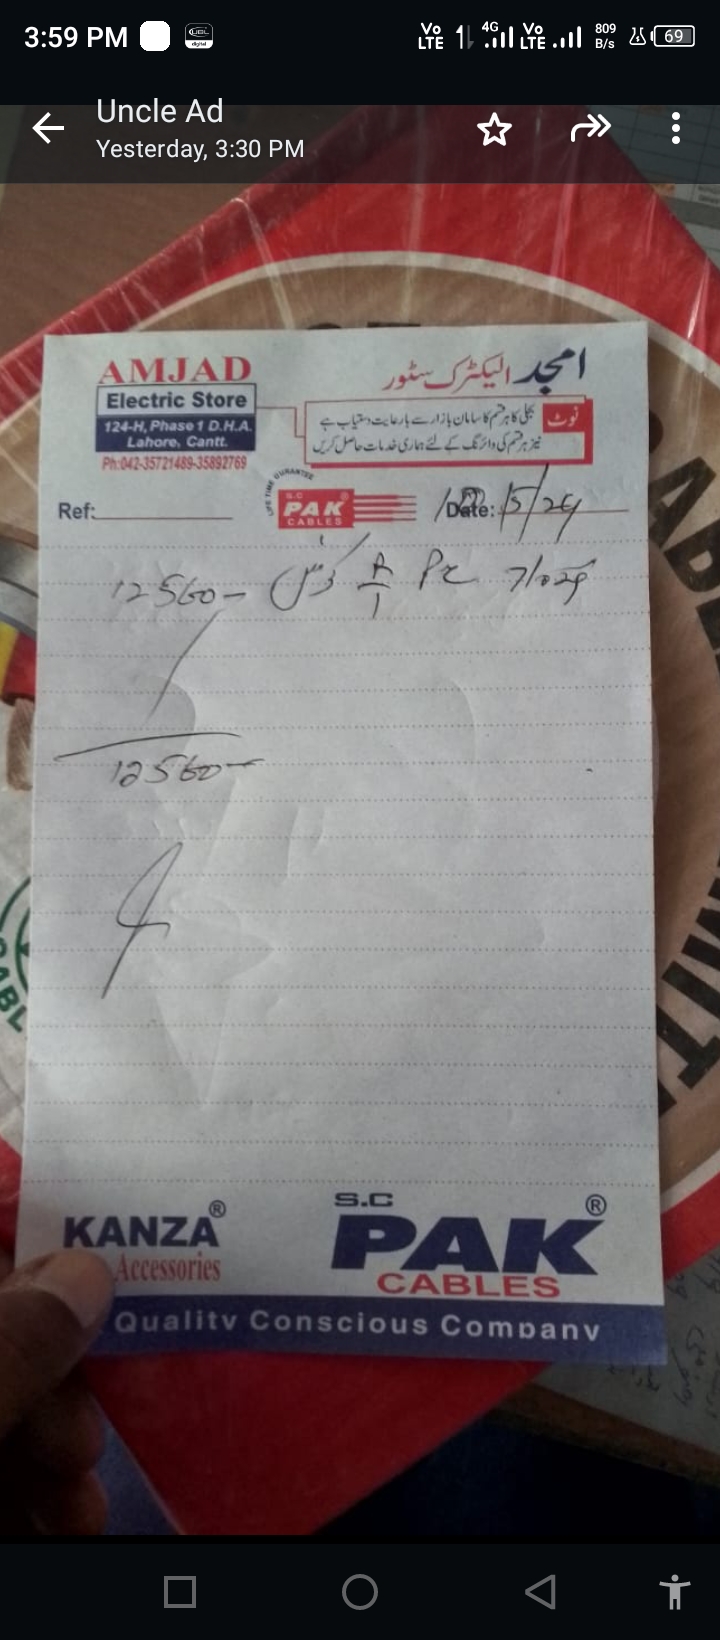 3:59 PM UBL digital Vo LTE 4G Vo LTE 809 B/s 69
Uncle Ad
Yesterday, 3:30 PM
AMJAD
Electric Store
124-H, Phase 1 D.H.A.
Lahore, Cantt.
Ph:042-35721489-35892769
امجد الیکٹرک سٹور
نوٹ بجلی کا ہر قسم کا سامان بازار سے بارعایت دستیاب ہے
نیز ہر قسم کی وائرنگ کے لئے ہماری خدمات حاصل کریں
Ref:
LIFE TIME GURANTEE
S.C
PAK®
CABLES
Date: /5/24
12560-
12560-
KANZA®
Accessories
S.C
PAK®
CABLES
Quality Conscious Company